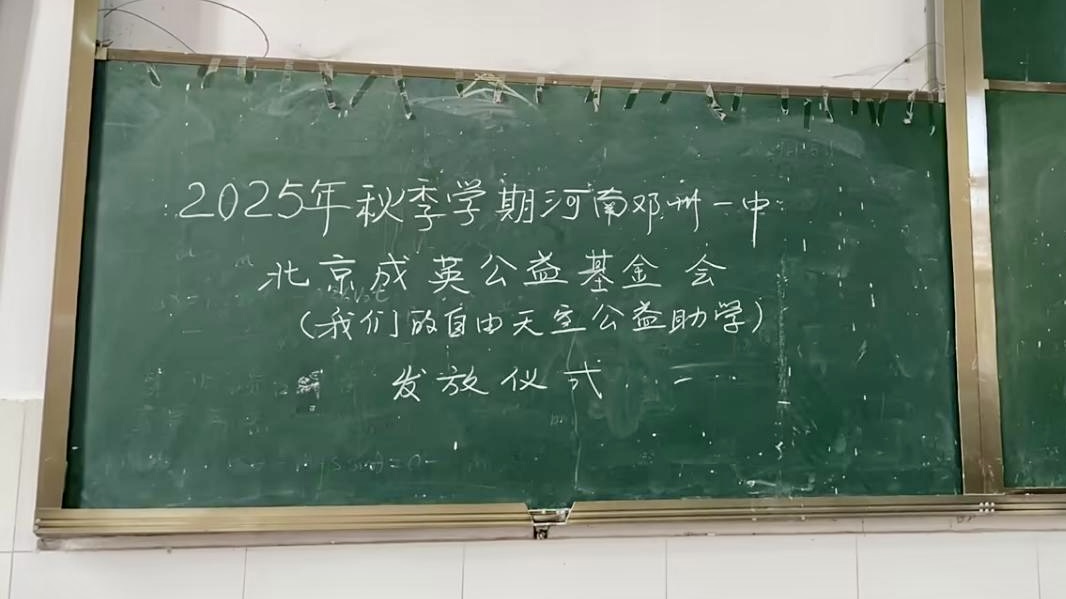 2025年秋季学期河南邓州一中
北京成英公益基金会
（我们的自由天空公益助学）
发放仪式